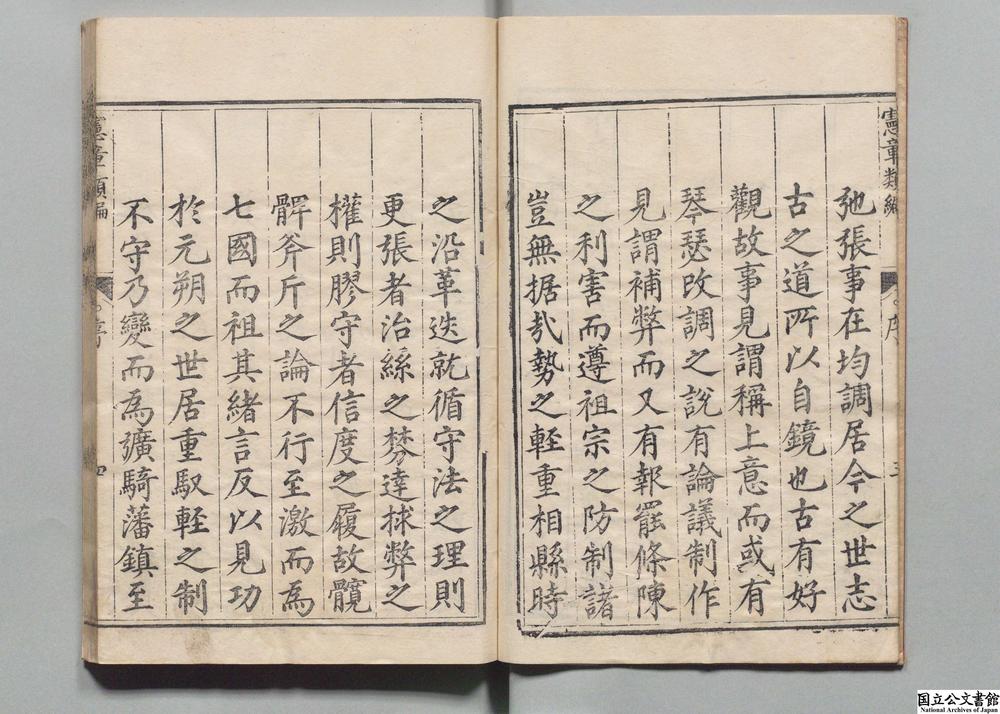 憲章類編
序
三
弛張事在均調居今之世志
古之道所以自鏡也古有好
觀故事見謂稱上意而或有
琴瑟改調之說有論議制作
見謂補弊而又有報罷條陳
之利害而遵祖宗之防制諸
豈無据㢤勢之輕重相縣時
之沿革迭就循守法之理則
更張者治絲之棼達捄弊之
權則膠守者信度之履故髖
髀斧斤之論不行至激而為
七國而祖其緒言反以見功
於元朔之世居重馭輕之制
不守乃變而為彍騎藩鎮至
憲章類編
序
四
国立公文書館
National Archives of Japan